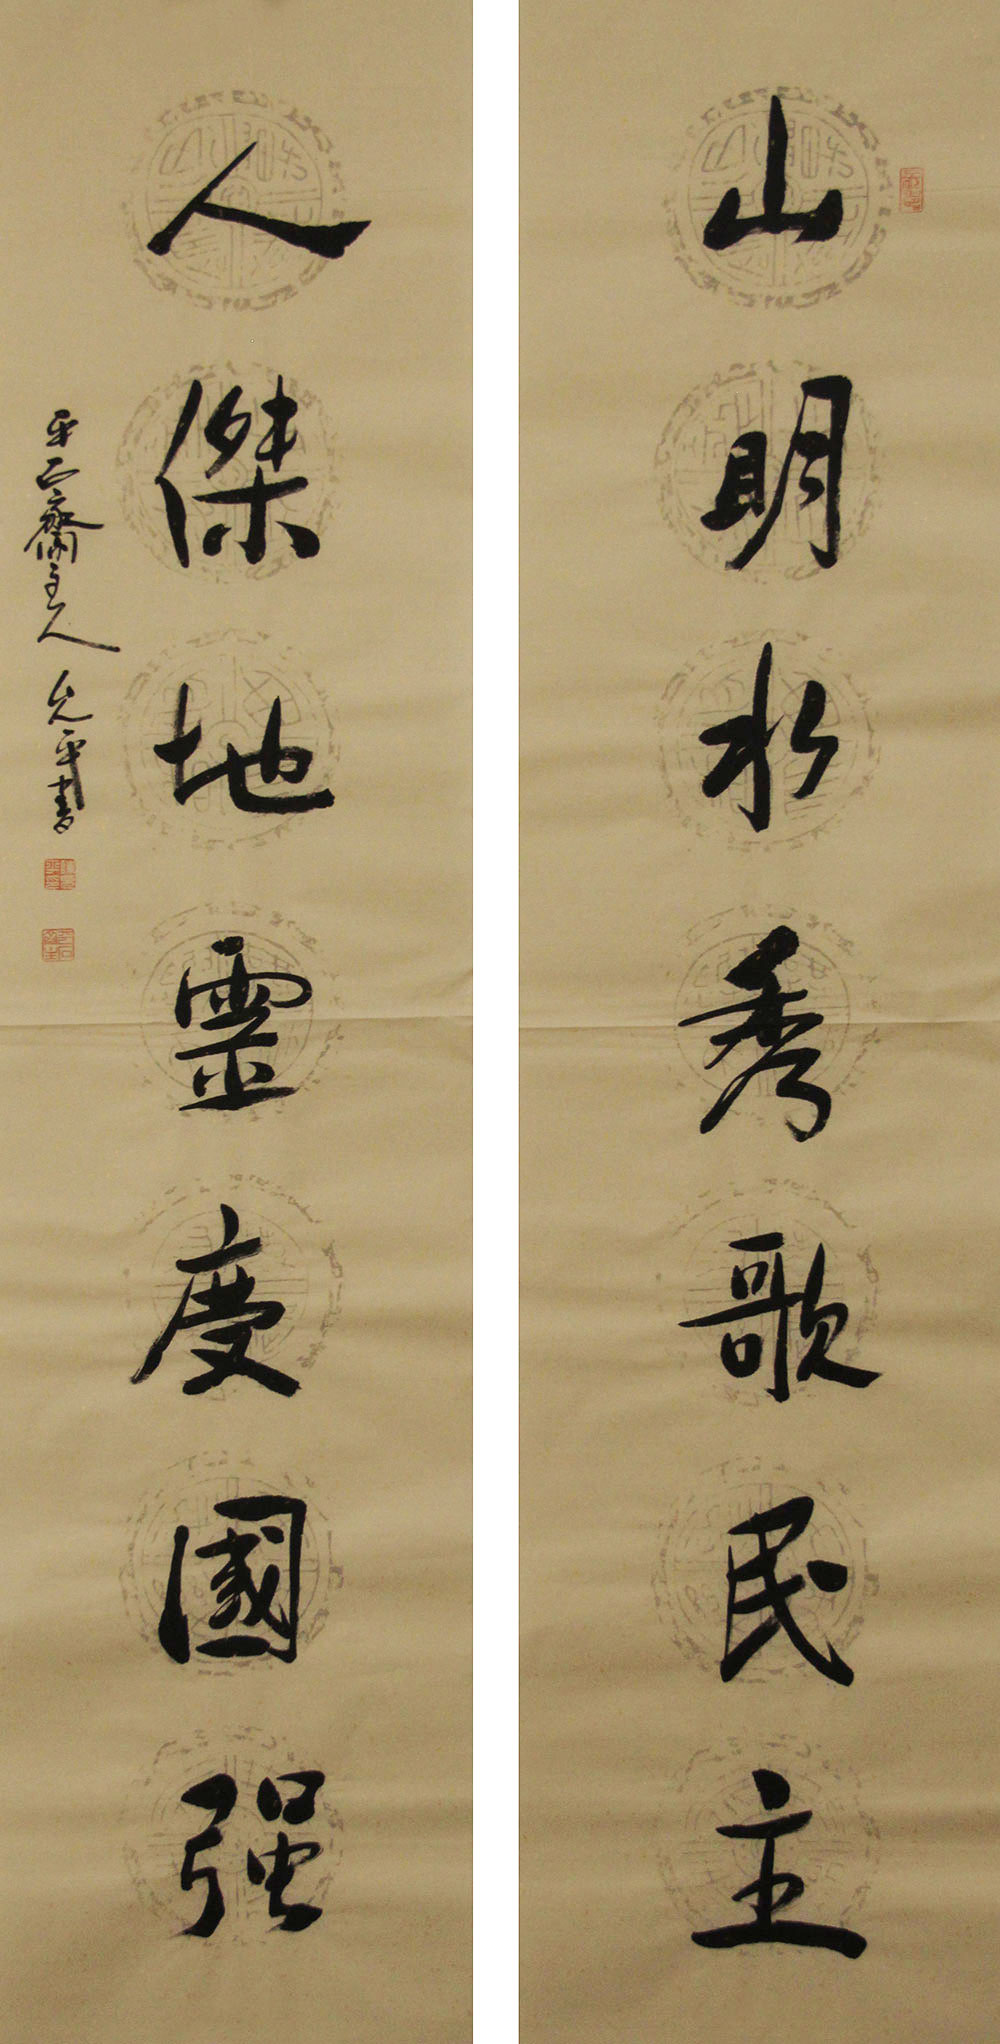 山明水秀歌民主
人傑地靈慶國强
平正齋主人 允平書